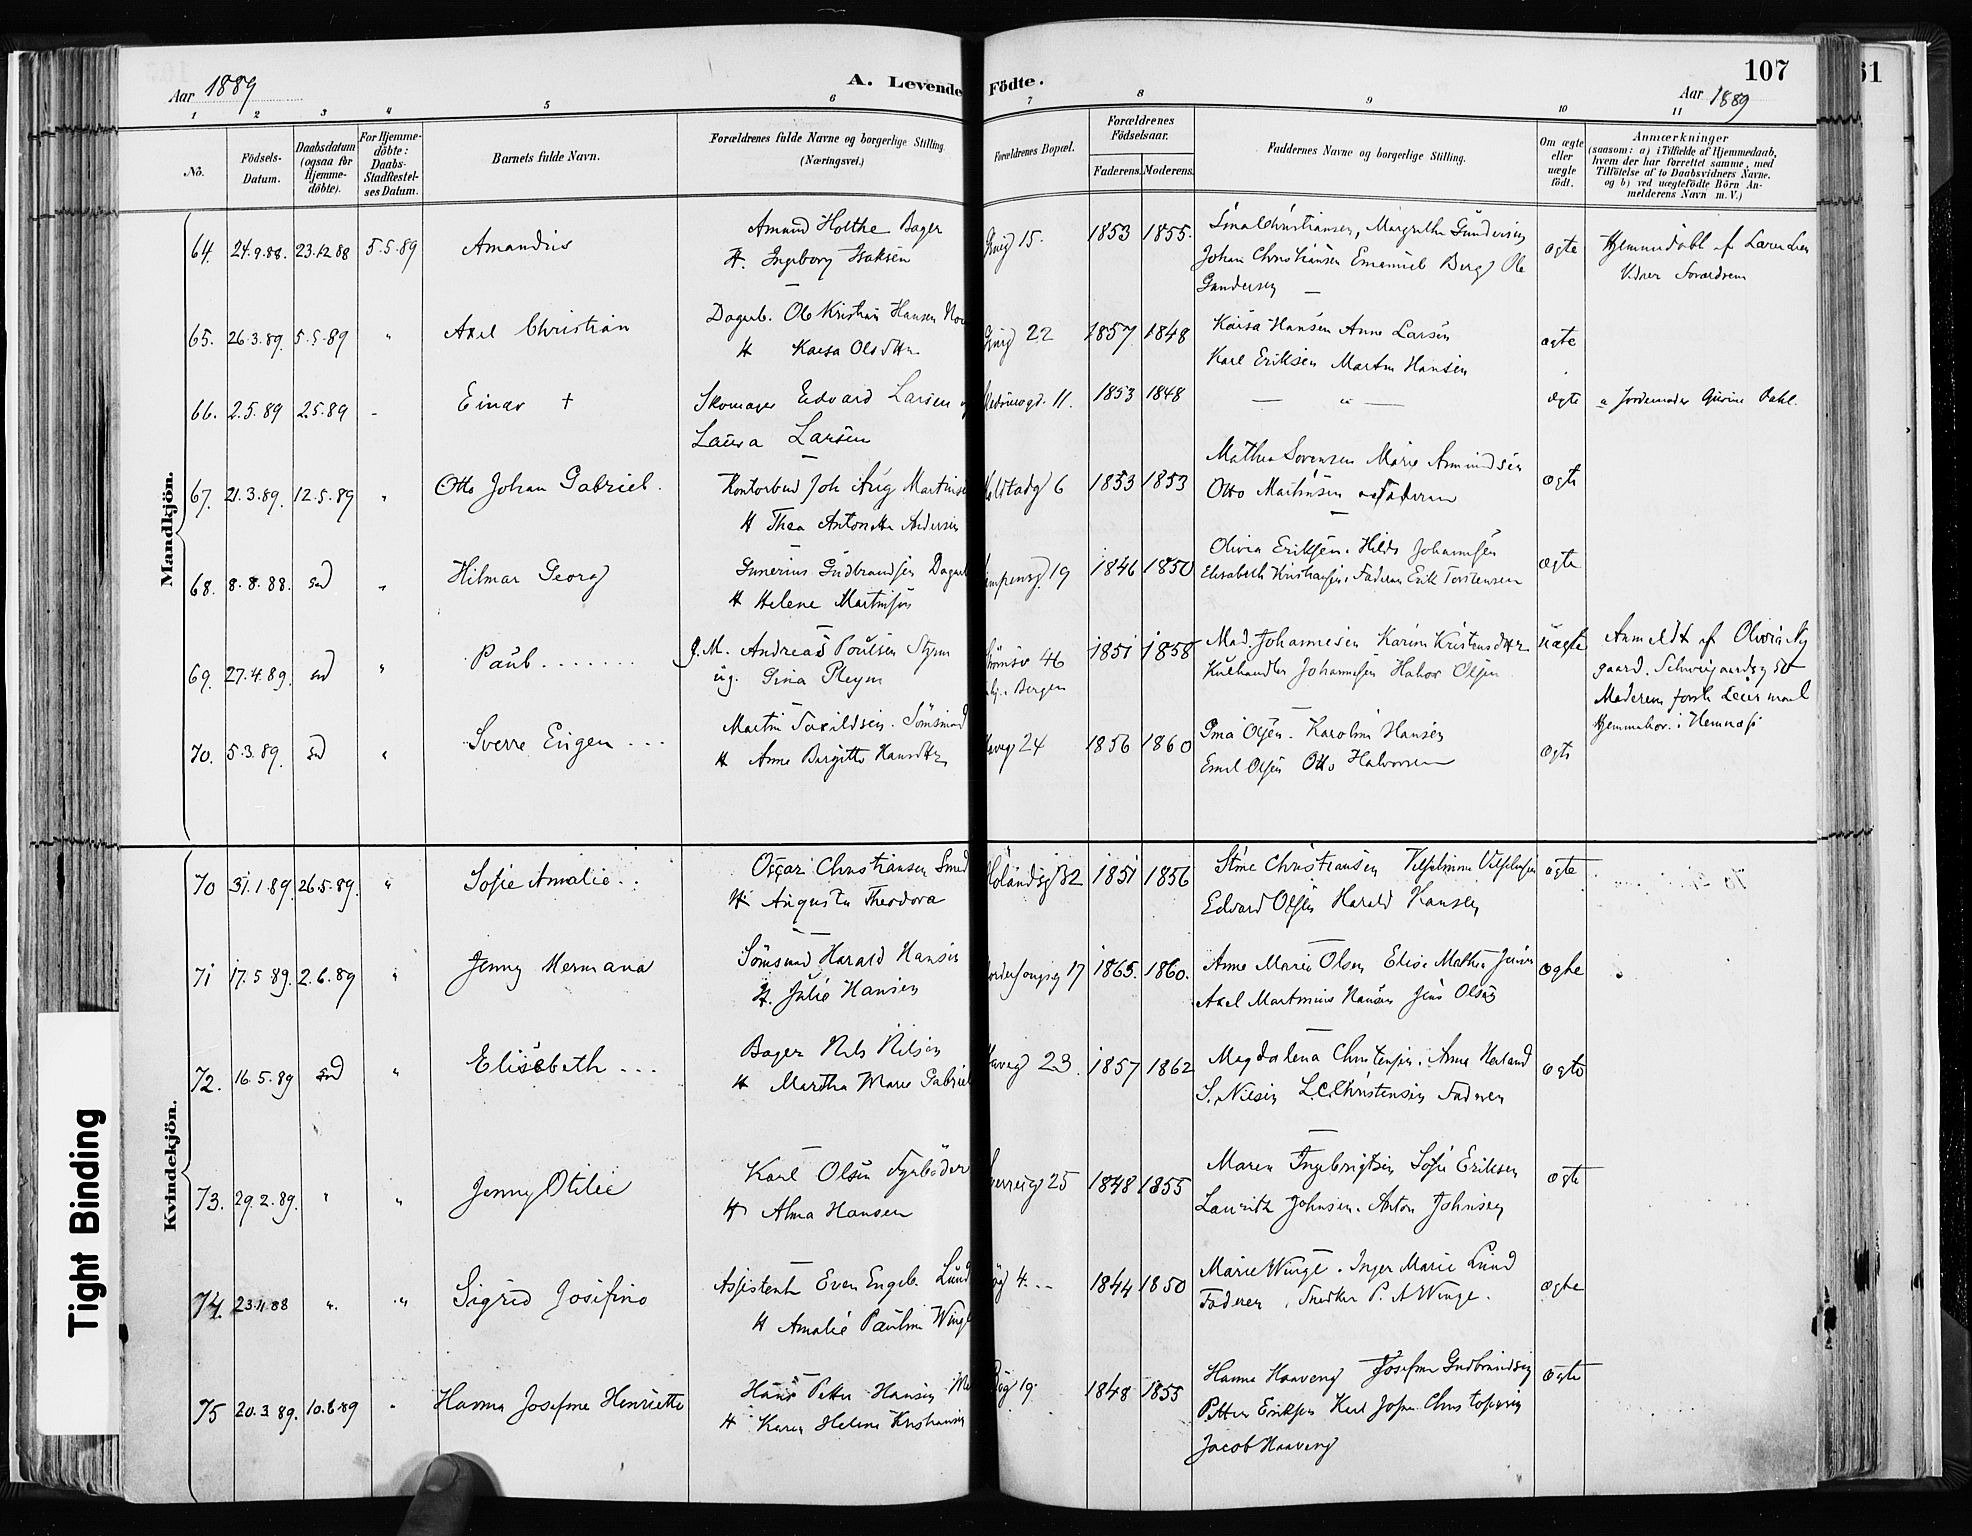 107
61
Aar 1889
A. Levende Födte.
Aar 1889
1 2 3 4 5 6 7 8 9 10 11
No.
Födsels-Datum.
Daabsdatum (ogsaa for Hjemme-döbte).
For Hjemme-döbte: Daabs-Stadfæstel-ses Datum.
Barnets fulde Navn.
Forældrenes fulde Navne og borgerlige Stilling.
(Næringsvei.)
Forældrenes Bopæl.
Forældrenes Födselsaar.
Faderens. Moderens.
Faddernes Navne og borgerlige Stilling.
Om ægte eller uægte födt.
Anmærkninger
(saasom: a) i Tilfælde af Hjemmedaab,
hvem der har forrettet samme, med
Tilföielse af to Daabsvidners Navne.
og b) ved uægtefödte Börn An-
melderens Navn m. V.)
Mandkjön.
64. 24.9.88. 23.12 88 5.5.89 Amandus Amund Holthe Bager 15. 1853 1855. Johan Christiansen Emanuel Berg Ole ægte
H. Ingeborg Isaksen
Gundersen
65. 26.3.89. 5.5.89 " Axel Christian Dagarb. Ole Kristian Hansen 22 1857 1848 Kaisa Hansen Anne Larsen ægte
H Kaisa Olsdtr
Karl Eriksen Martin Hansen
66. 2.5.89 2.5.89 Einar + Skomager Edvard Larsen 11. 1853 1848 ægte Jordemoder Dahl.
Laura Larsen
67. 21.3.89. 12.5.89 " Otto Johan Gabriel. Kontorbud Joh Aug Martinsen 6 1853 1853 Mathea Sorensen Marie Amundsen ægte
H Thea Antonette Andersen
Otto Martinsen Faderen
68. 8.8.88. sd " Hilmar Georg Gunerius Gudbrandsen Dagarb 19 1846 1850 Olivia Eriksen. Hilda Johannesen ægte
H Helene Martinsen
Elisabeth Kristiansen. Faderen Erik Torstensen
69. 27.4.89. sd " Paul....... Andreas Poulsen Styrm 46 1851 1858 Mad. Johannesen Karen Kristensdtr uægte Anmeldt af Olivia Ny
ug. Gina Pleym
Bergen
Kulhandler Johannesen Halvor Olsen
gaard. Schweigaardsg 50
Moderens forste Leiermaal
Hjemmehør. i Hemnæs
70. 5.3.89. sd " Sverre Eugen ... Martin Tarildsen. Tømmermd 24 1856 1860 Gina Olsen. Karoline Hansen ægte
H Anne Birgitte Hansdtr
Emil Olsen Otto Halvorsen
Kvindekjön.
70 31.1.89. 26.5.89. " Sofie Amalie.. Oscar Christiansen Smed 1851 1856 Stine Christiansen ægte
H Augusta Theodora
Edvard Olsen Harald Hansen
71 17.5 89. 2.6.89 " Jenny Hermana Harald Hansen 17 1865. 1860. Anne Marie Olsen Elise Mathea ægte
H. Julie Hansen
Axel Martinius Hansen Jens Olsen
72. 16.5.89 sd " Elisabeth ... Bager Nils Nilsen 23. 1857 1862 Magdalena Christensen. Anna ægte
H Martha Marie Gabriel
S. Nilsen L.C. Christensen Faderen
73. 29.2.89. " " Jenny Otilie Karl Olsen Fyrbøder 25 1848 1855 Maren Ingebrigtsen Sofie Eriksen ægte
H Alma Hansen
Lauritz Johnsen. Anton Johnsen
74. 23.11.88 " " Sigrid Josefine Assistent Even Engeb. Lund 4. 1844 1850 Marie Winge. Inger Marie Lund ægte
H Amalie Pauline Winge
Faderen, Snedker P. A Winge.
75 20.3 89. 10.6.89 " Hanna Josefine Henriette Hans Petter Hansen 19 1848 1855 Hanna Haaveng Josefine Gudbrandsen ægte
H Karen Helene Kristiansen
Petter Eriksen Karl Johan Christophersen
Jacob Haaveng
Tight Binding